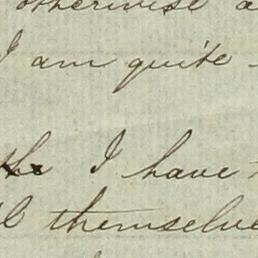 otherwise a
I am quite -
the I have
l themselve